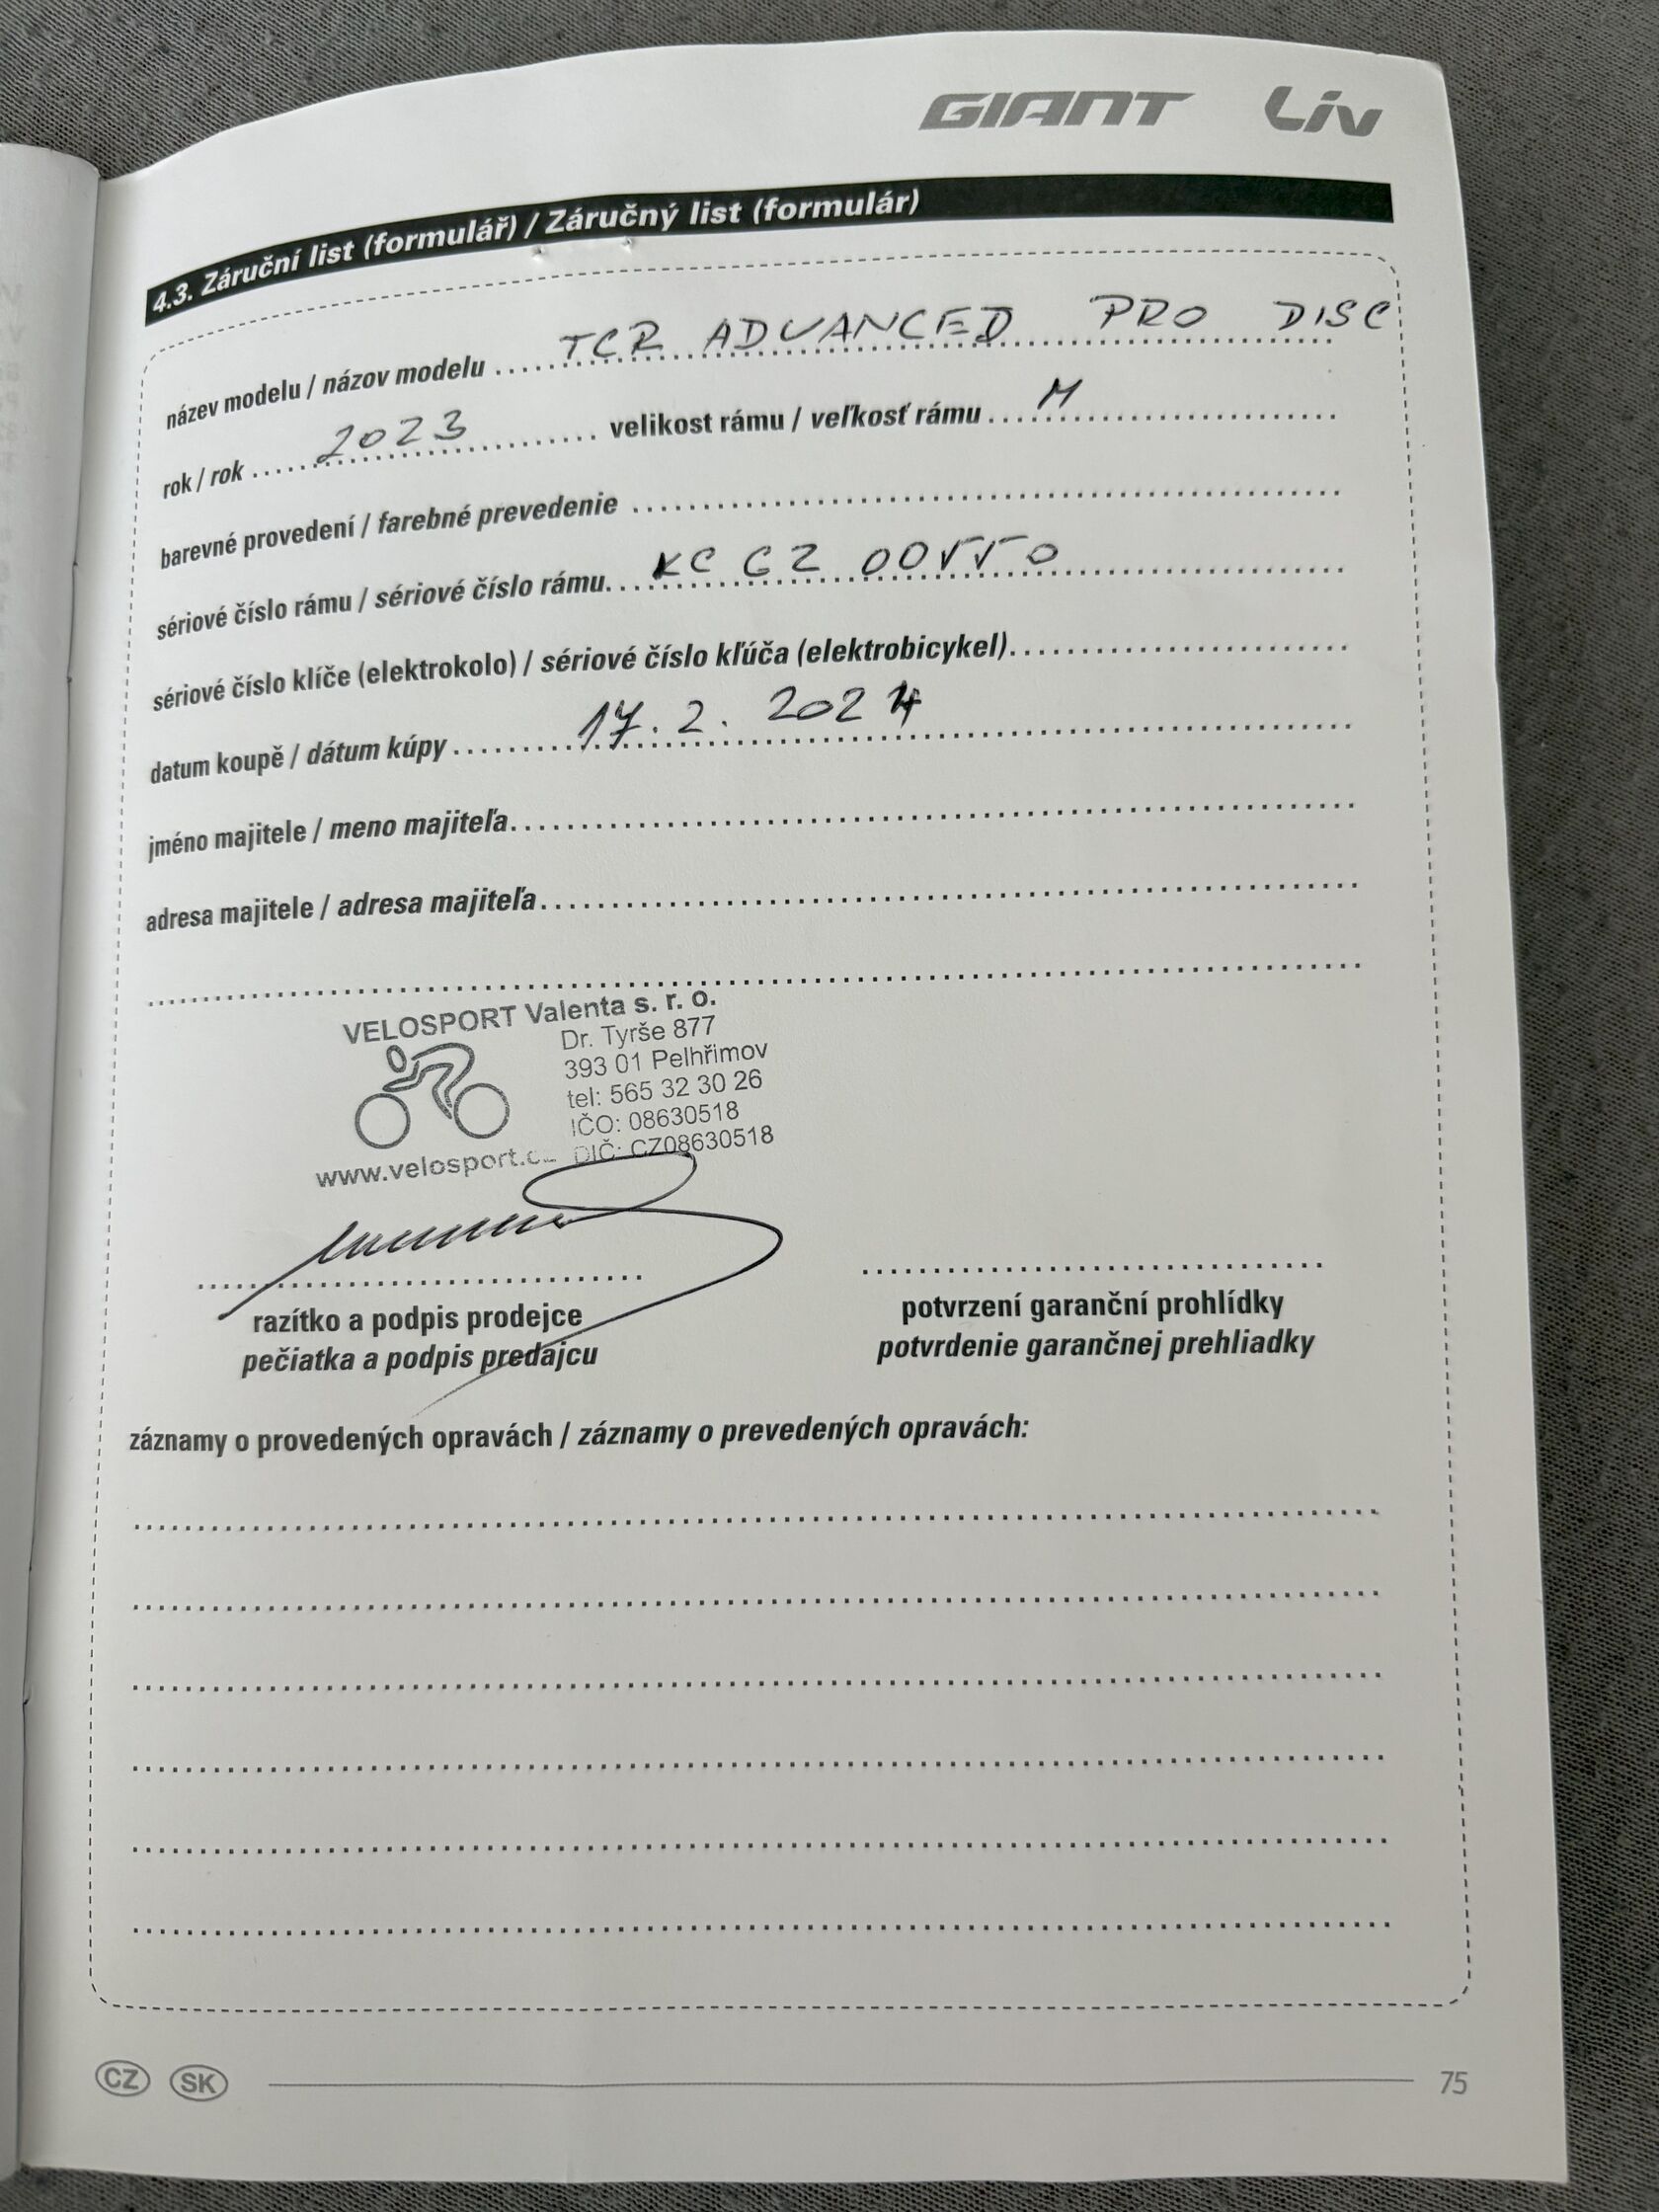 GIANT Liv
4.3. Záruční list (formulář) / Záručný list (formulár)
název modelu / názov modelu TCR ADVANCED PRO DISC
rok / rok 2023 velikost rámu / veľkosť rámu M
barevné provedení / farebné prevedenie
sériové číslo rámu / sériové číslo rámu KC GZ 00550
sériové číslo klíče (elektrokolo) / sériové číslo kľúča (elektrobicykel)
datum koupě / dátum kúpy 17. 2. 2024
jméno majitele / meno majiteľa
adresa majitele / adresa majiteľa
VELOSPORT Valenta s. r. o.
Dr. Tyrše 877
393 01 Pelhřimov
tel: 565 32 30 26
IČO: 08630518
www.velosport.cz DIČ: CZ08630518
razítko a podpis prodejce
pečiatka a podpis predajcu
potvrzení garanční prohlídky
potvrdenie garančnej prehliadky
záznamy o provedených opravách / záznamy o prevedených opravách:
CZ SK 75